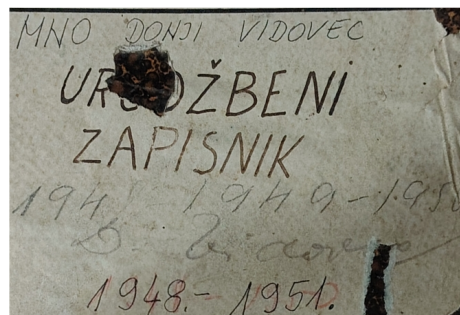 MNO DONJI VIDOVEC
URUDŽBENI
ZAPISNIK
1949-195
D. Vidovec
1948.- 1951.